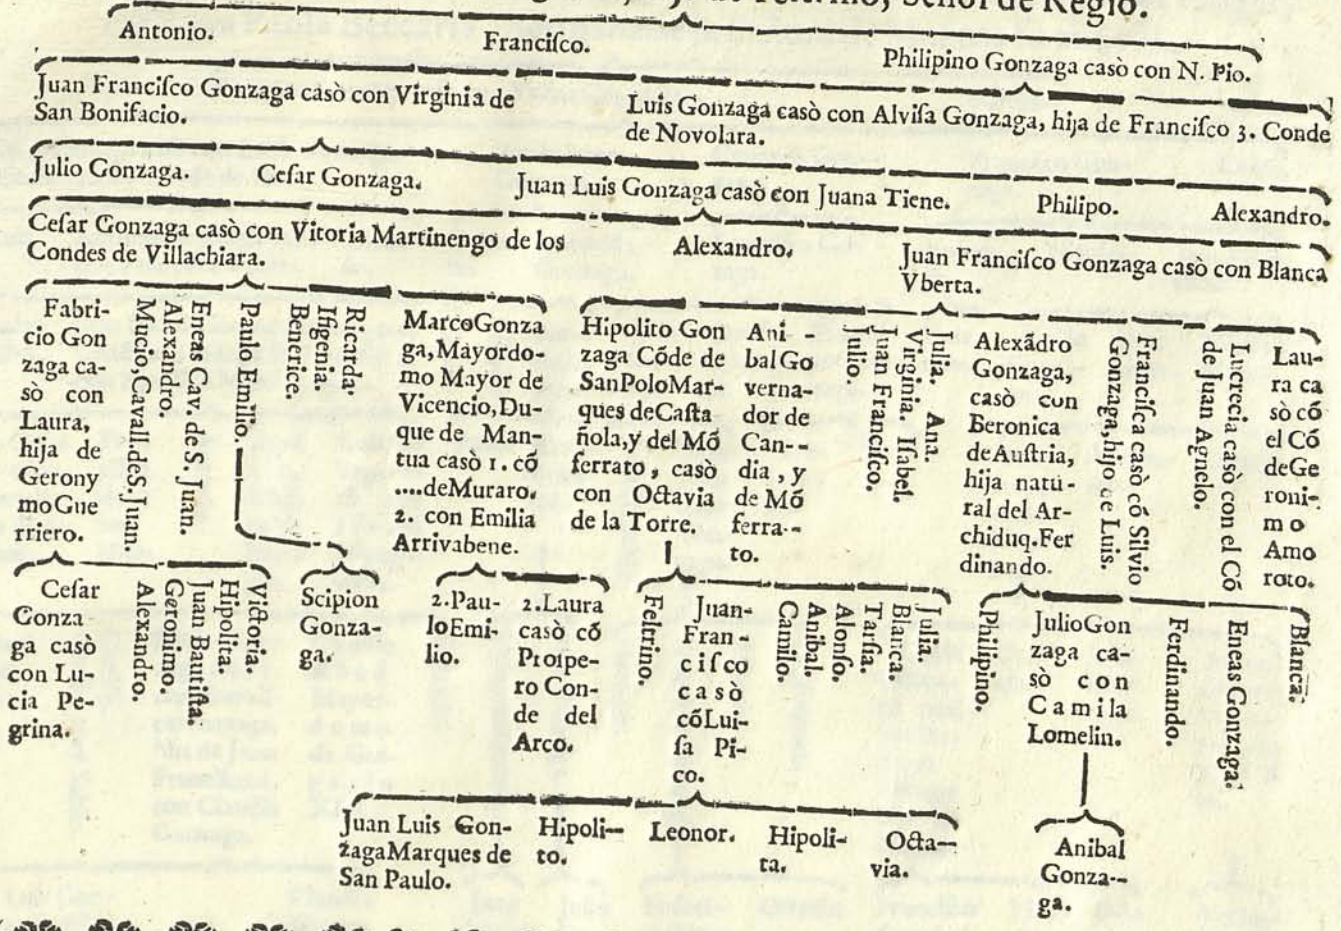 Señor de Regio.
Antonio.
Franciſco.
Philipino Gonzaga casò con N. Pio.
Juan Franciſco Gonzaga casò con Virginia de
San Bonifacio.
Luis Gonzaga casò con Alviſa Gonzaga, hija de Franciſco 3. Conde
de Novolara.
Julio Gonzaga.
Ceſar Gonzaga.
Juan Luis Gonzaga casò con Juana Tiene.
Philipo.
Alexandro.
Ceſar Gonzaga casò con Vitoria Martinengo de los
Condes de Villachiara.
Alexandro.
Juan Franciſco Gonzaga casò con Blanca
Vberta.
Fabri-
cio Gon
zaga ca-
sò con
Laura,
hija de
Gerony
moGue
rriero.
Mucio, Cavall.deS.Juan.
Alexandro.
Eneas Cav. de S. Juan.
Paulo Emilio.
Benerice.
Ifigenia.
Ricarda.
MarcoGonza
ga, Mayordo-
mo Mayor de
Vicencio, Du-
que de Man-
tua casò 1. cõ
....deMuraro.
2. con Emilia
Arrivabene.
Hipolito Gon
zaga Cõde de
SanPoloMar-
ques deCaſta
ñola, y del Mõ
ferrato, casò
con Octavia
de la Torre.
Ani-
balGo
verna-
dor de
Can--
dia, y
de Mõ
ferra--
to.
Julio.
Juan Franciſco.
Virginia. Iſabel.
Julia. Ana.
Alexãdro
Gonzaga,
casò con
Beronica
deAuſtria,
hija natu-
ral del Ar-
chiduq.Fer
dinando.
Franciſca casò cõ Silvio
Gonzaga, hijo de Luis.
Lucrecia casò con el Cõ
de Juan Agnelo.
Lau-
ra ca
sò cõ
el Cõ
deGe
roni-
mo
Amo
roto.
Ceſar
Gonza
ga casò
con Lu-
cia Pe-
grina.
Alexandro.
Geronimo.
Juan Bautiſta.
Hipolita.
Victoria.
Scipion
Gonza-
ga.
2.Pau-
loEmi-
lio.
2.Laura
casò cõ
Proſpe-
ro Con-
de del
Arco.
Feltrino.
Juan-
Fran-
ciſco
casò
cõLui-
ſa Pi-
co.
Camilo.
Anibal.
Alonſo.
Tarſia.
Blanca.
Julia.
Philipino.
JulioGon
zaga ca-
sò con
Camila
Lomelin.
Ferdinando.
Eneas Gonzaga.
Blanca.
Juan Luis Gon-
zagaMarques de
San Paulo.
Hipoli--
to.
Leonor.
Hipoli-
ta.
Octa--
via.
Anibal
Gonza--
ga.